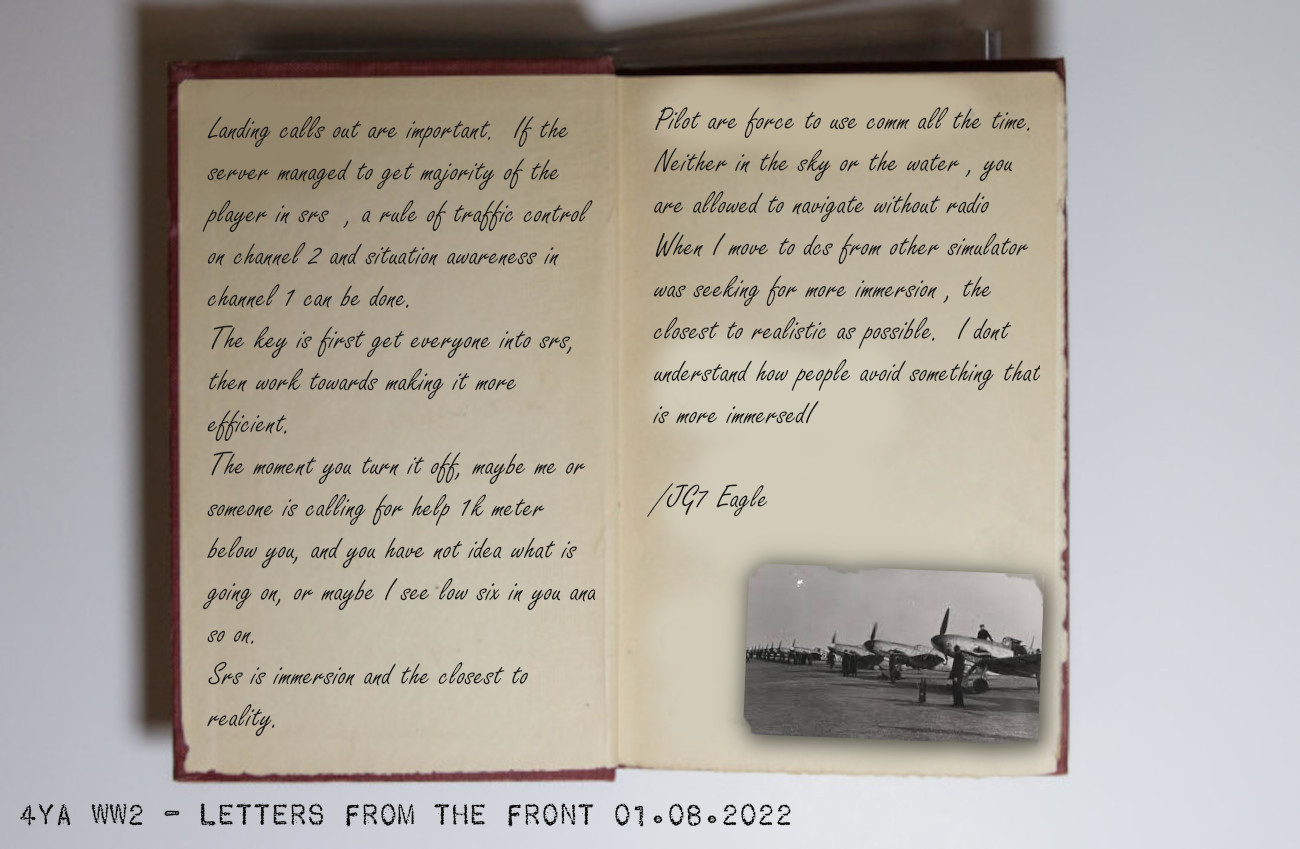 Landing calls out are important. If the
server managed to get majority of the
player in srs , a rule of traffic control
on channel 2 and situation awareness in
channel 1 can be done.
The key is first get everyone into srs,
then work towards making it more
efficient.
The moment you turn it off, maybe me or
someone is calling for help 1k meter
below you, and you have not idea what is
going on, or maybe I see low six in you and
so on.
Srs is immersion and the closest to
reality.
Pilot are force to use comm all the time.
Neither in the sky or the water , you
are allowed to navigate without radio
When I move to dcs from other simulator
was seeking for more immersion , the
closest to realistic as possible. I dont
understand how people avoid something that
is more immersed!
/JG7 Eagle
4YA WW2 - LETTERS FROM THE FRONT 01.08.2022